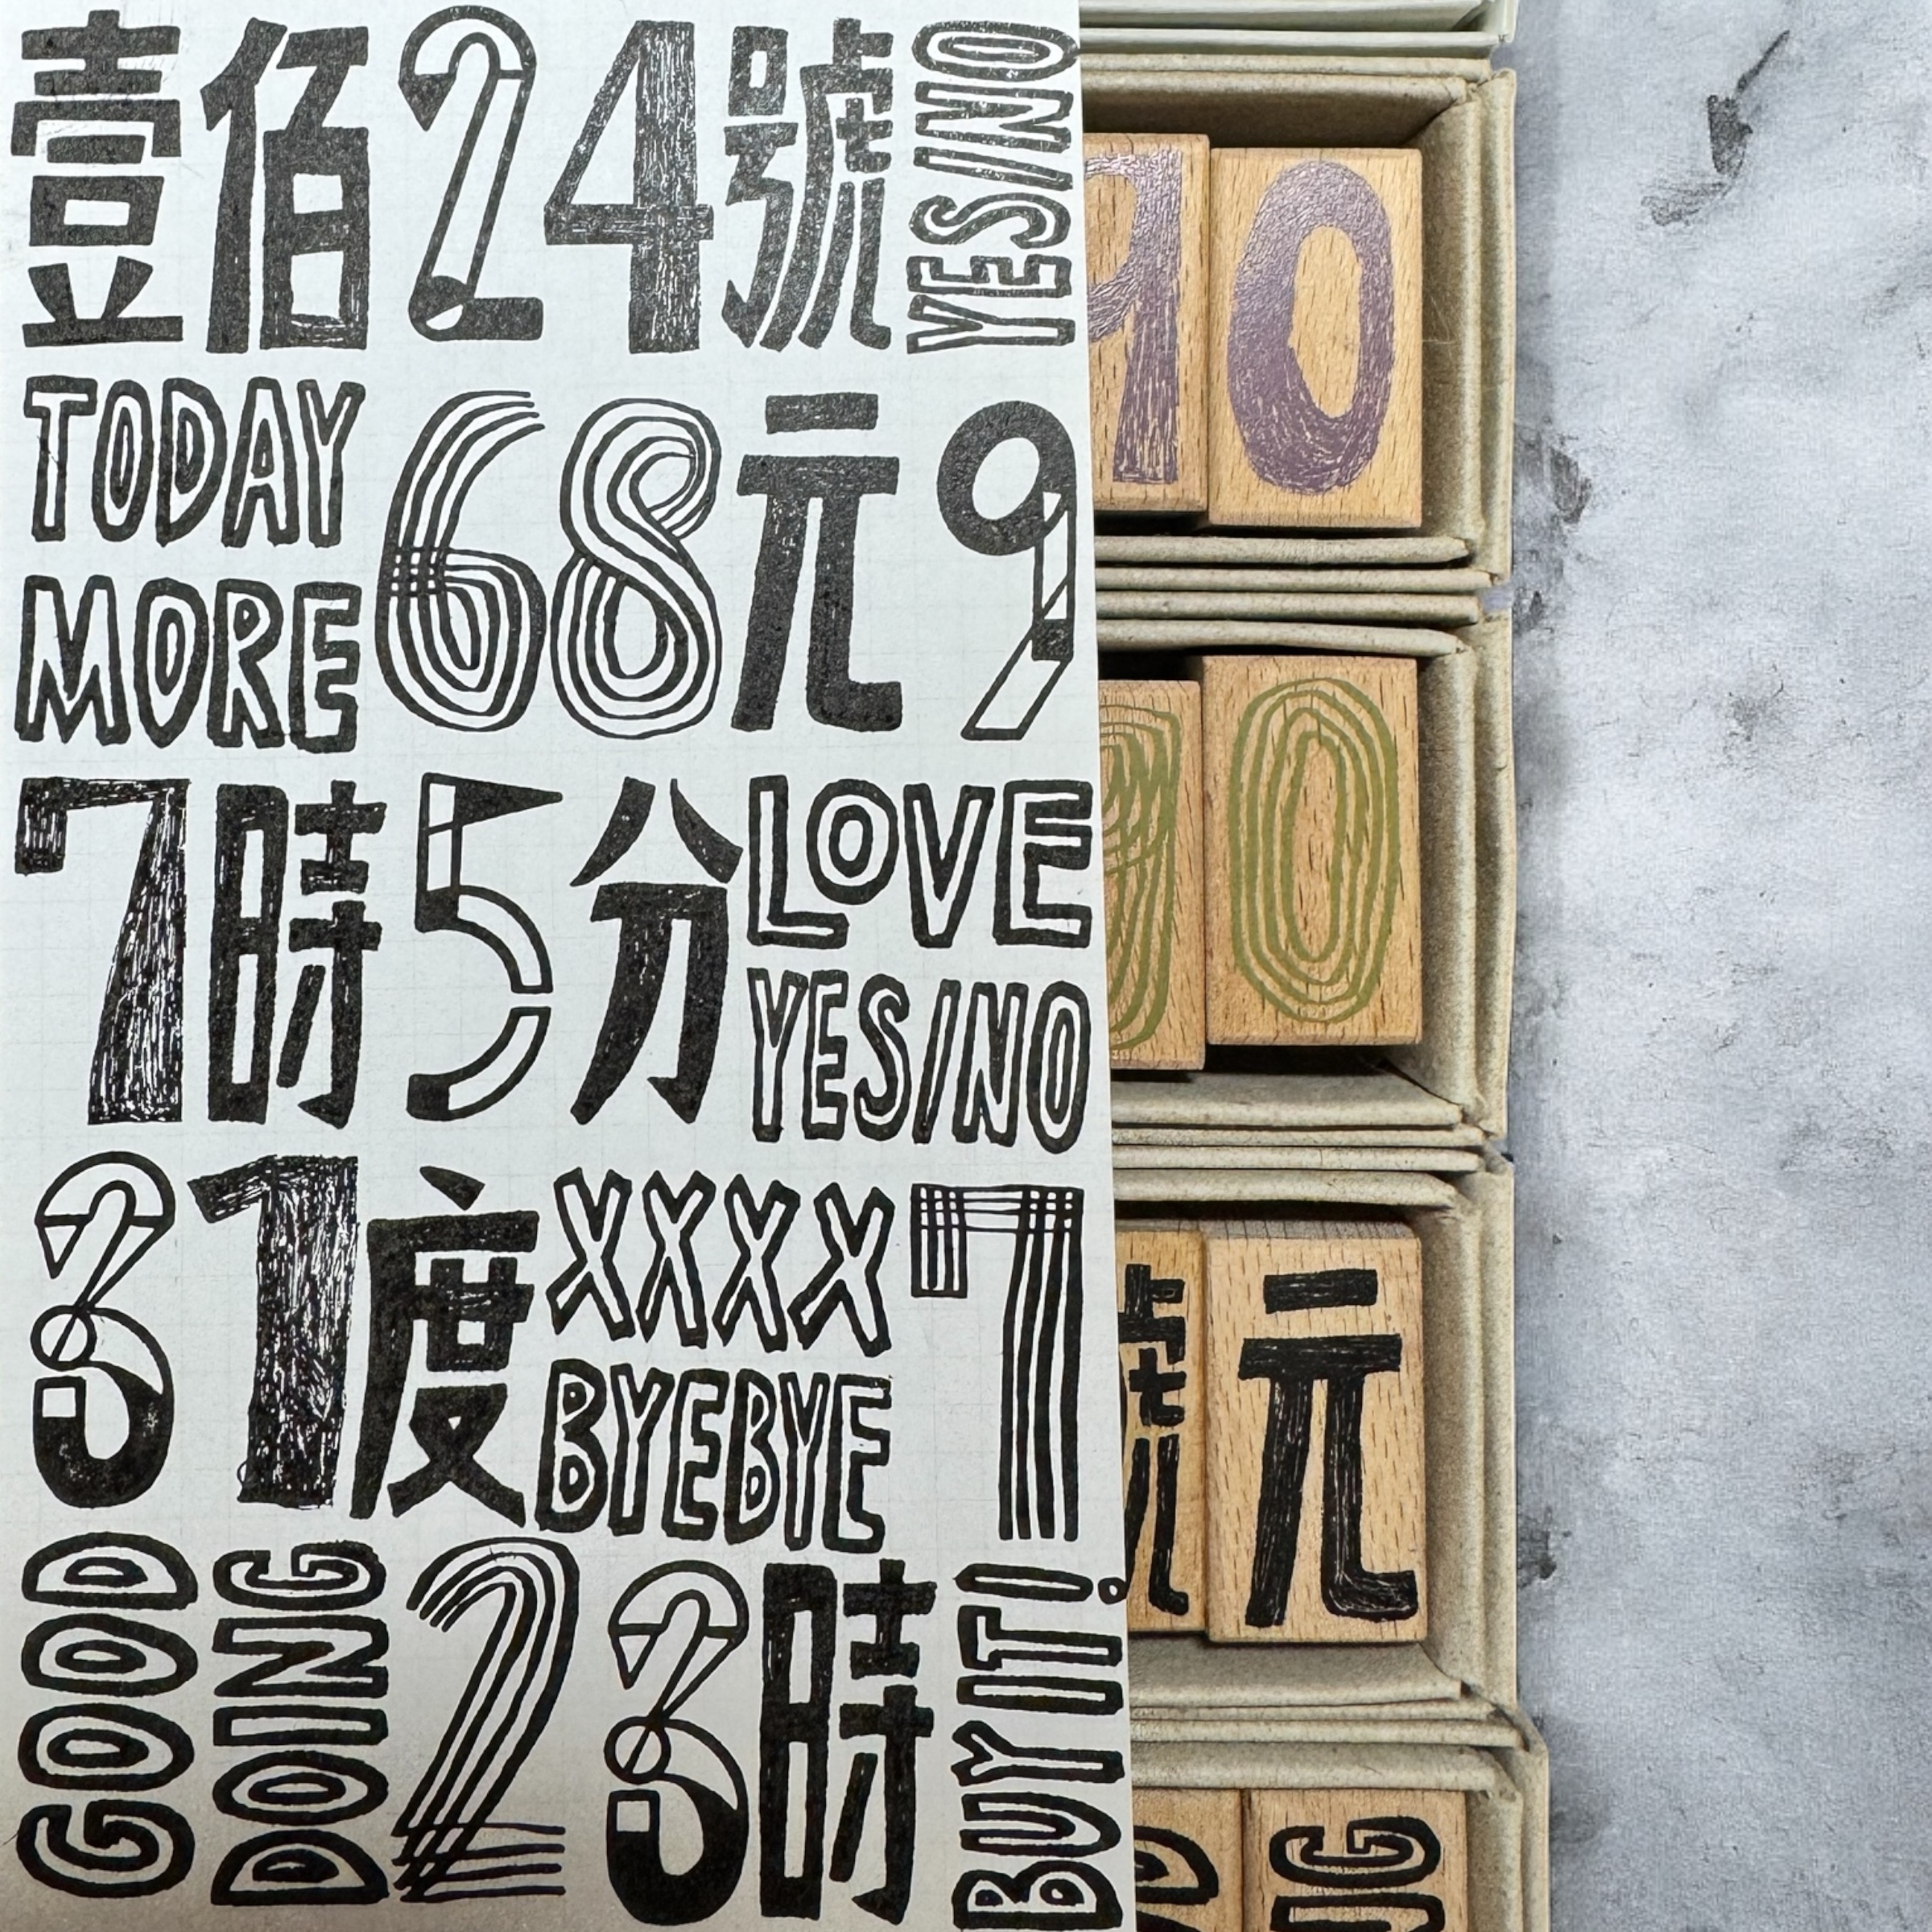 壹佰24號 YES/NO
TODAY
MORE
68元 9
7時5分
LOVE
YES/NO
31度
XXXX
BYEBYE
7
GOOD
DOING
23時
BUY IT!
90
0
號元